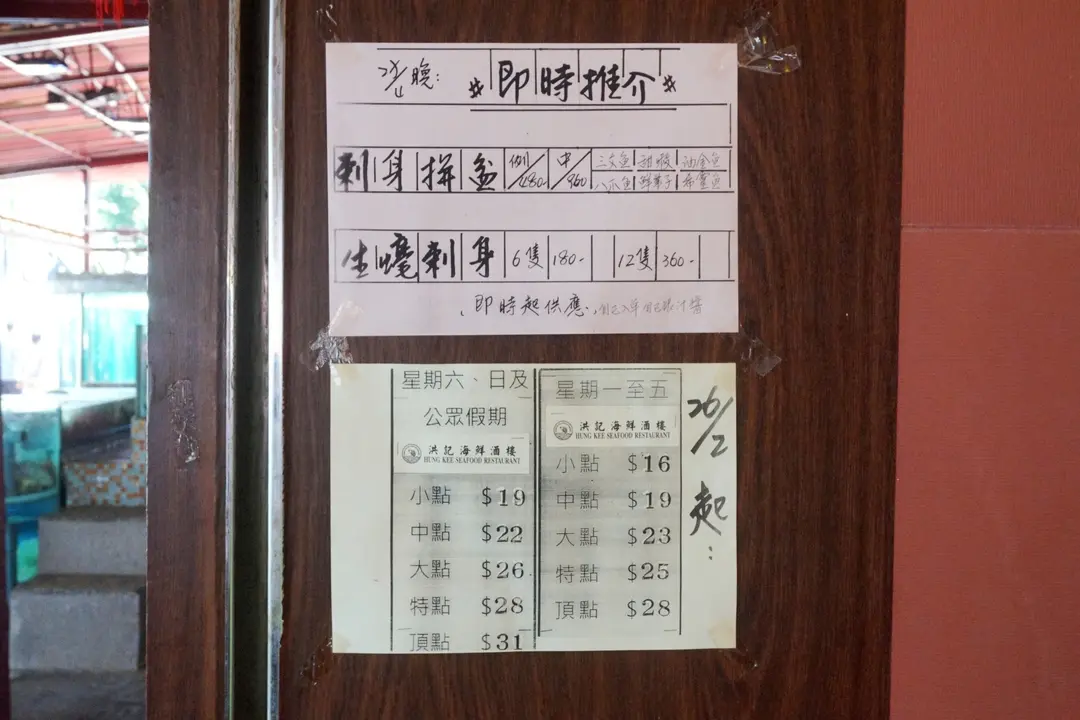 晚：
*即時推介*
刺身拼盆 例/480- 中/960 三文魚 甜蝦 油金魚
八爪魚 鮮帶子 希靈魚
生蠔刺身 6隻 180- 12隻 360-
即時起供應
星期六、日及
公眾假期
洪記海鮮酒樓
HUNG KEE SEAFOOD RESTAURANT
小點 $19
中點 $22
大點 $26
特點 $28
頂點 $31
星期一至五
洪記海鮮酒樓
HUNG KEE SEAFOOD RESTAURANT
小點 $16
中點 $19
大點 $23
特點 $25
頂點 $28
26/2起：